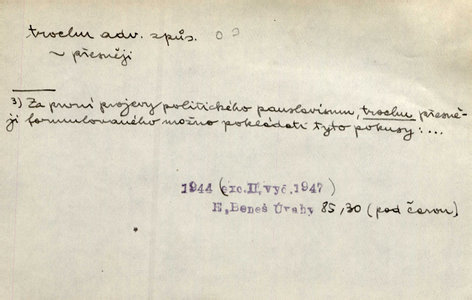 trochu adv. způs.
~ přesněji
3) Za první projevy politického panslavismu, trochu přesně-
ji formulovaného možno pokládati tyto pokusy: ...
1944 (exc. II, vyd. 1947)
E. Beneš Úvahy 85,30 (pod čarou)